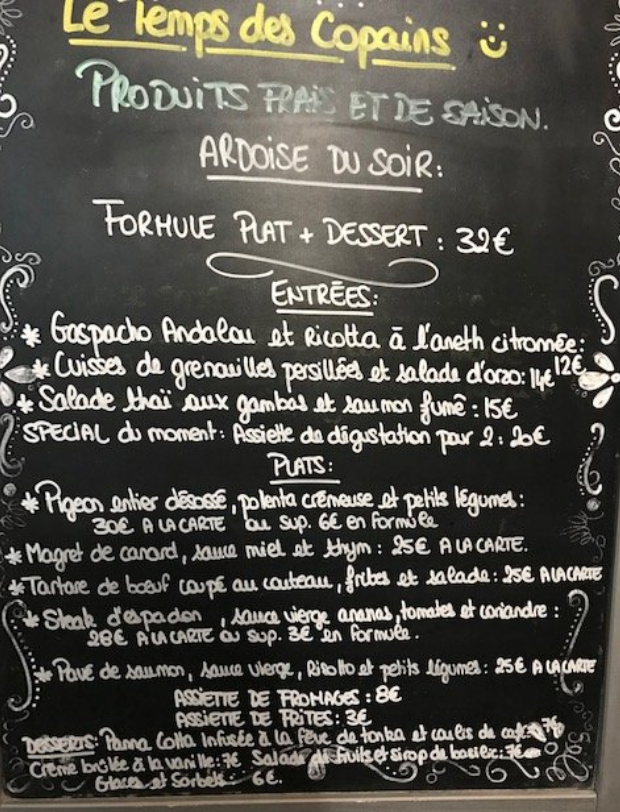 Le Temps des Copains
PRODUITS FRAIS ET DE SAISON.
ARDOISE DU SOIR:
FORMULE PLAT + DESSERT : 32€
ENTRÉES:
* Gaspacho Andalou et Ricotta à l'aneth citronnée: 12€
* Cuisses de grenouilles persillées et salade d'orzo: 14€
* Salade thaï aux gambas et saumon fumé : 15€
SPECIAL du moment: Assiette de dégustation pour 2 : 20€
PLATS:
* Pigeon entier désossé, polenta crémeuse et petits légumes:
30€ A LA CARTE ou sup. 6€ en formule
* Magret de canard, sauce miel et thym : 25€ A LA CARTE.
* Tartare de boeuf coupé au couteau, frites et salade: 25€ A LA CARTE
* Steak d'espadon, sauce vierge ananas, tomates et coriandre :
28€ A LA CARTE ou sup. 3€ en formule.
* Pavé de saumon, sauce vierge, Risotto et petits légumes: 25€ A LA CARTE
ASSIETTE DE FROMAGES : 8€
ASSIETTE DE FRITES : 3€
DESSERTS: Panna Cotta Infusée à la fève de tonka et coulis de café: 7€
Crème brûlée à la vanille: 7€ Salade de fruits et sirop de basilic: 7€
Glaces et Sorbets: 6€.